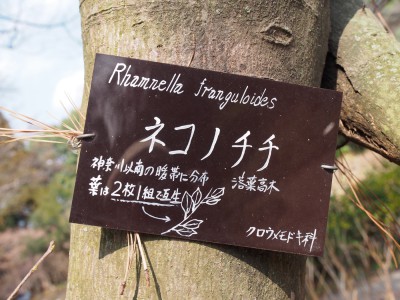 Rhamnella franguloides
ネコノチチ
神奈川以南の暖帯に分布 落葉高木
葉は2枚1組で互生
クロウメモドキ科